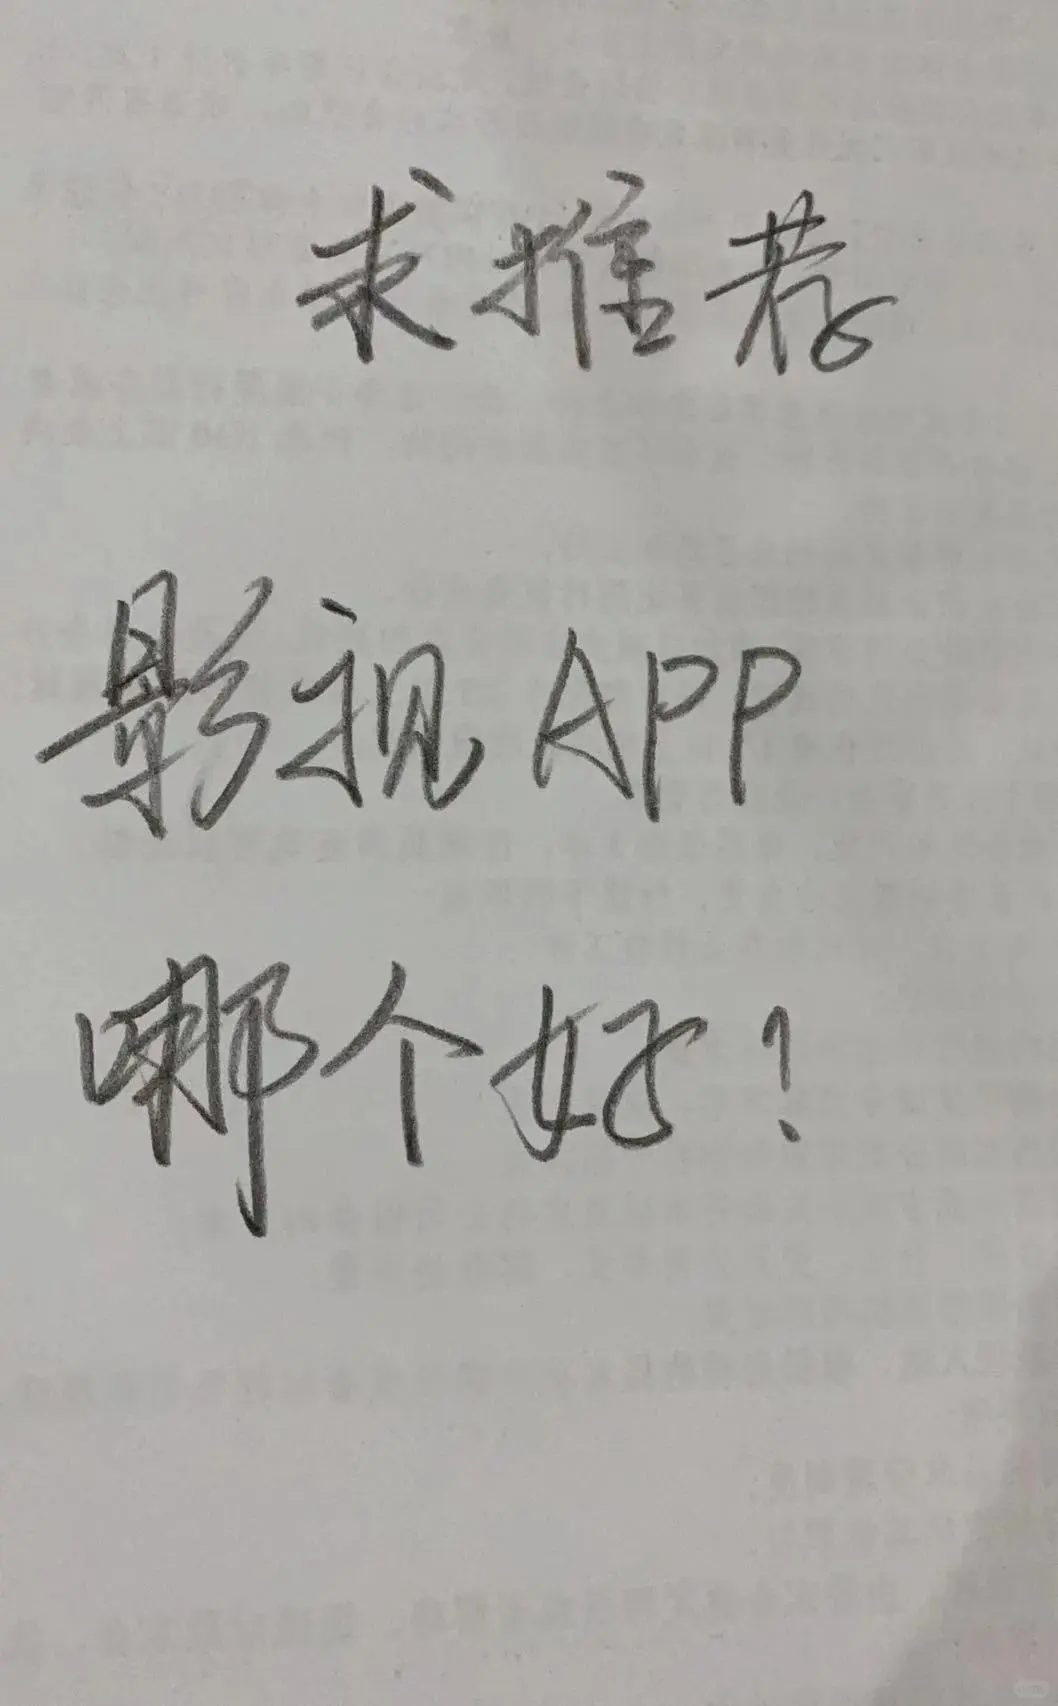 求推荐
影视APP
哪个好!